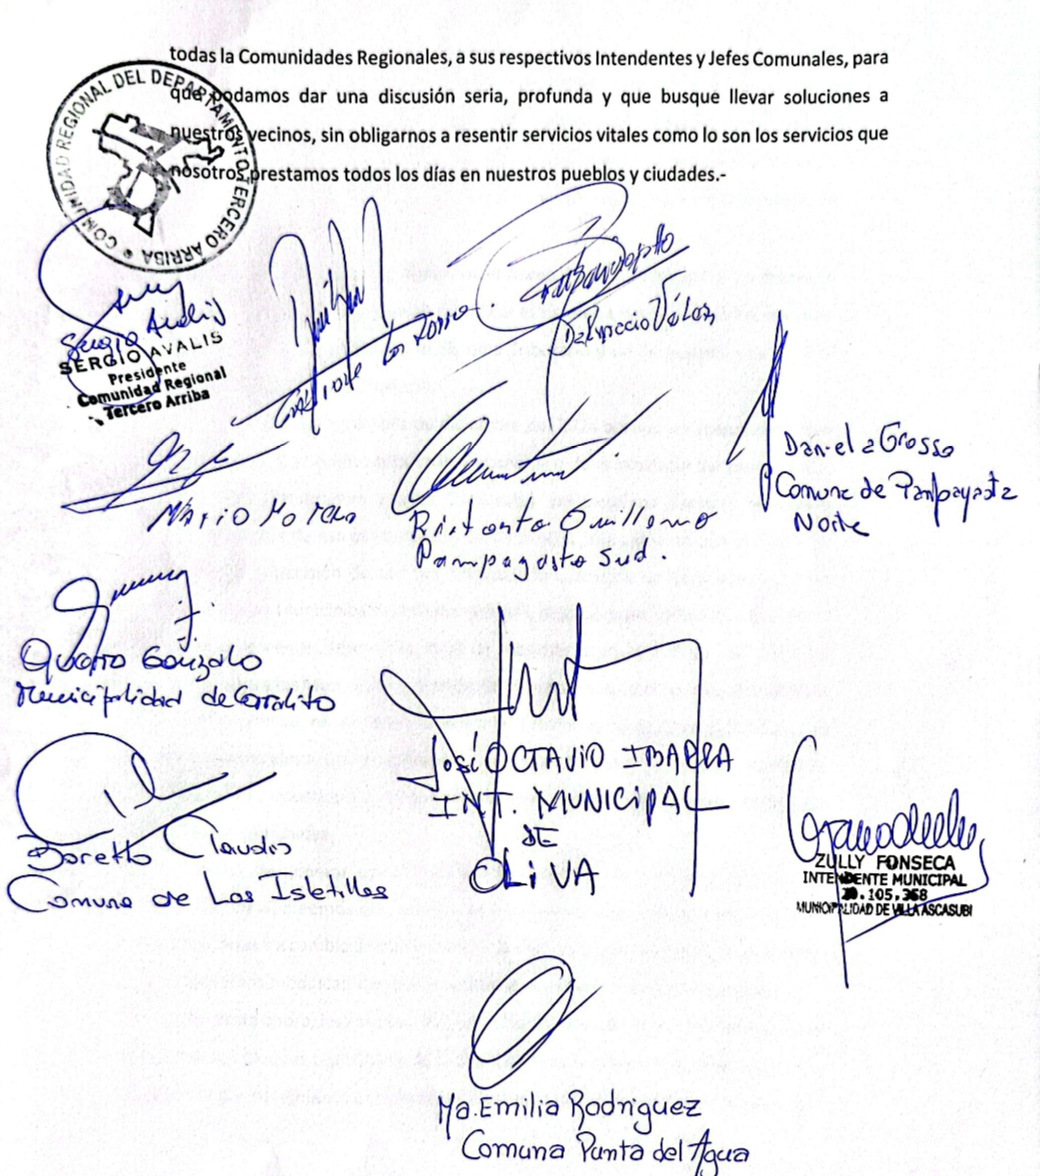 todas la Comunidades Regionales, a sus respectivos Intendentes y Jefes Comunales, para
que podamos dar una discusión seria, profunda y que busque llevar soluciones a
nuestros vecinos, sin obligarnos a resentir servicios vitales como lo son los servicios que
nosotros prestamos todos los días en nuestros pueblos y ciudades.-
COMUNIDAD REGIONAL DEL DEPARTAMENTO TERCERO ARRIBA
Sergio
SERGIO AVALIS
Presidente
Comunidad Regional
Tercero Arriba
Dalmacio Vélez
Daniela Grosso
Comuna de Pampayasta
Norte
Mario
Guillermo
Pampayasta Sud.
Gonzalo
Municipalidad de Corralito
José OCTAVIO IBARRA
INT. MUNICIPAL
DE
OLIVA
Boretto Claudio
Comuna de Las Isletillas
ZULLY FONSECA
INTENDENTE MUNICIPAL
.105.368
MUNICIPALIDAD DE VILLA ASCASUBI
Ma. Emilia Rodriguez
Comuna Punta del Agua